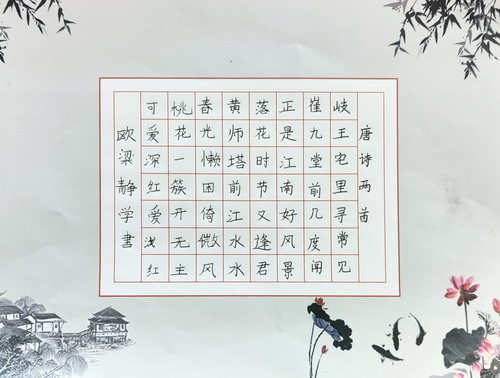 唐诗两首
岐王宅里寻常见
崔九堂前几度闻
正是江南好风景
落花时节又逢君
黄师塔前江水水
春光懒困倚微风
桃花一簇开无主
可爱深红爱浅红
欧梁静学書